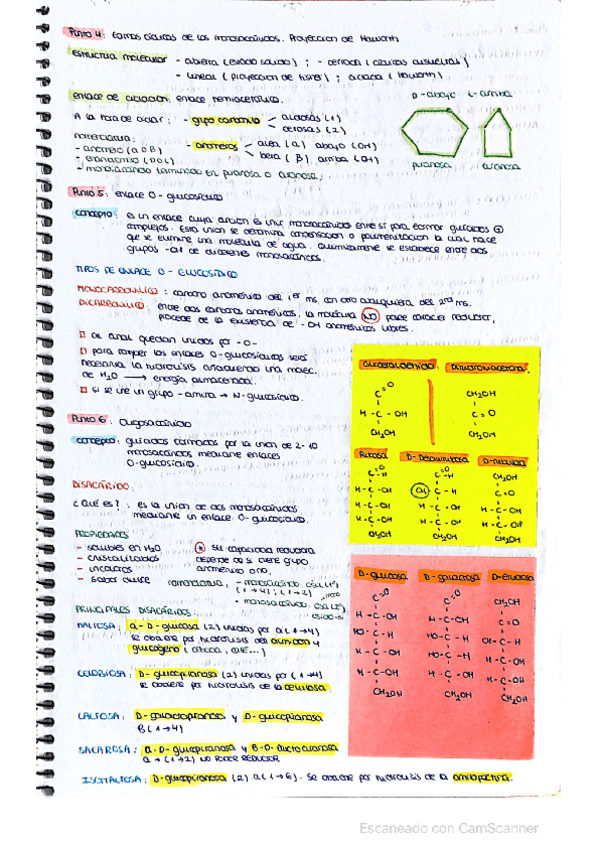 Punto 4: Formas cíclicas de los monosacáridos. Proyección de Haworth
estructura molecular - abierta (estado sólido) ; - cerrada (cíclicas disueltas)
- lineal ( proyección de Fisher) ; cíclica ( Haworth )
enlace de ciclación: enlace hemiacetálico.
D - abajo L - arriba
A la hora de ciclar: - grupo carbonilo
aldosas (1)
cetosas (2)
nomenclatura:
- anómero (α o β)
- enantiómero (D o L)
- anómeros
alfa (α) abajo (OH)
beta (β) arriba (OH)
- monosacárido terminado en piranosa o furanosa.
piranosa furanosa
Punto 5: enlace O - glucosídico
concepto: es un enlace cuya función es unir monosacáridos entre sí para formar glúcidos +
complejos. Esta unión se denomina condensación o polimerización la cual hace
que se elimine una molécula de agua. Químicamente se establece entre dos
grupos -OH de diferentes monosacáridos.
TIPOS DE ENLACE O - GLUCOSÍDICO
MONOCARBONÍLICO : carbono anomérico del 1er ms, con otro cualquiera del 2º ms.
DICARBONÍLICO : entre dos carbonos anoméricos, la molécula NO
procede de la existencia de - OH anoméricos libres.
Al final quedan unidos por - O -
para romper los enlaces O-glucosídicos será
necesaria la hidrólisis añadiendo una molec.
de H2O → energía almacenada.
si se une un grupo - amino → N-glucosídico.
Punto 6: Oligosacárido
concepto: glúcidos formados por la unión de 2 - 10
monosacáridos mediante enlaces
O-glucosídico.
DISACÁRIDO:
¿Qué es? : es la unión de dos monosacáridos
mediante un enlace O- glucosídico.
PROPIEDADES
- solubles en H2O
- cristalizados
- incoloros
- sabor dulce
* su capacidad reductora
depende de si tiene grupo
anomérico o no.
nomenclatura,
(1→4) ; (1→2)
PRINCIPALES DISACÁRIDOS:
MALTOSA: α- D- glucosa (2) unidas por α(1→4)
se obtiene por hidrólisis del almidón y
glucógeno
CELOBIOSA: D- glucopiranosa (2) unidas por β(1→4)
se obtiene por hidrólisis de la celulosa
LACTOSA: D- galactopiranosa y D- glucopiranosa
β(1→4)
SACAROSA: α- D- glucopiranosa y β-D- fructofuranosa
α→(1→2) NO PODER REDUCTOR
ISOMALTOSA: D- glucopiranosa (2) α(1→6). Se obtiene por hidrólisis de la amilopectina.
Gliceraldehído. Dihidroxiacetona.
C=O CH2OH
H - C - OH C = O
CH2OH CH2OH
Ribosa D- Desoxirribosa D-ribulosa
D- glucosa D- galactosa D-fructosa
Escaneado con CamScanner